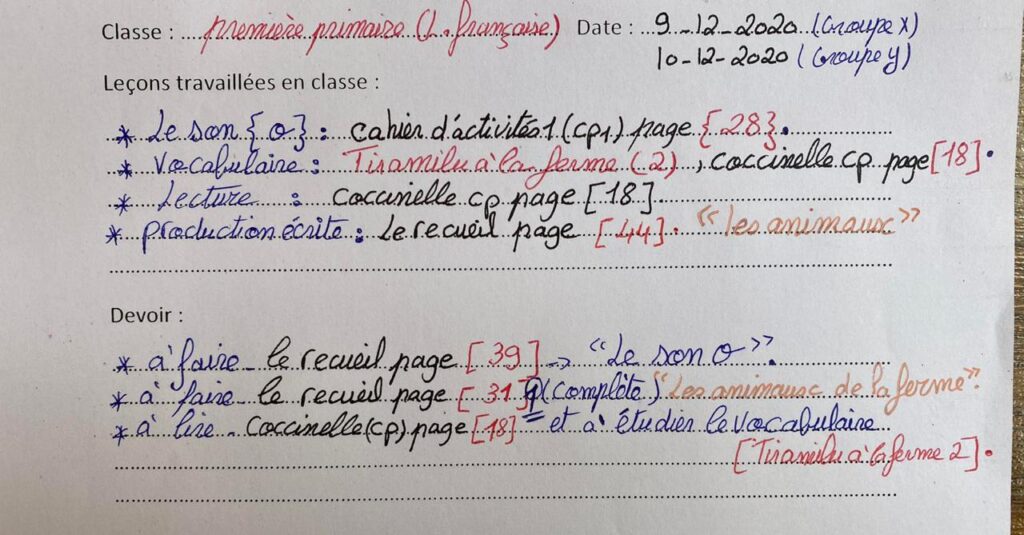 Classe : première primaire (L. française) Date : 9-12-2020 (Groupe X)
10-12-2020 (Groupe y)
Leçons travaillées en classe :
* Le son {o} : cahier d'activités 1 (cp1) page {28}.
* Vocabulaire : Tiramilu à la ferme (2), coccinelle cp page [18].
* Lecture : coccinelle cp page [18].
* production écrite : Le recueil page [44]. "les animaux"
Devoir :
* à faire - le recueil page [39] → "Le son o".
* à faire - le recueil page [31] (complète) "Les animaux de la ferme".
* à lire - Coccinelle (cp) page [18] = et à étudier le vocabulaire
[Tiramilu à la ferme 2].